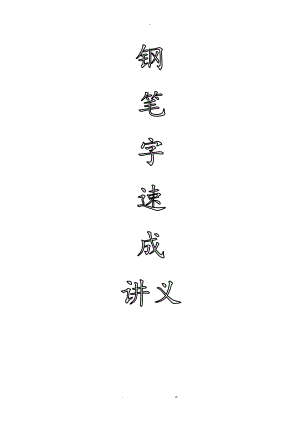 钢
笔
字
速
成
讲义